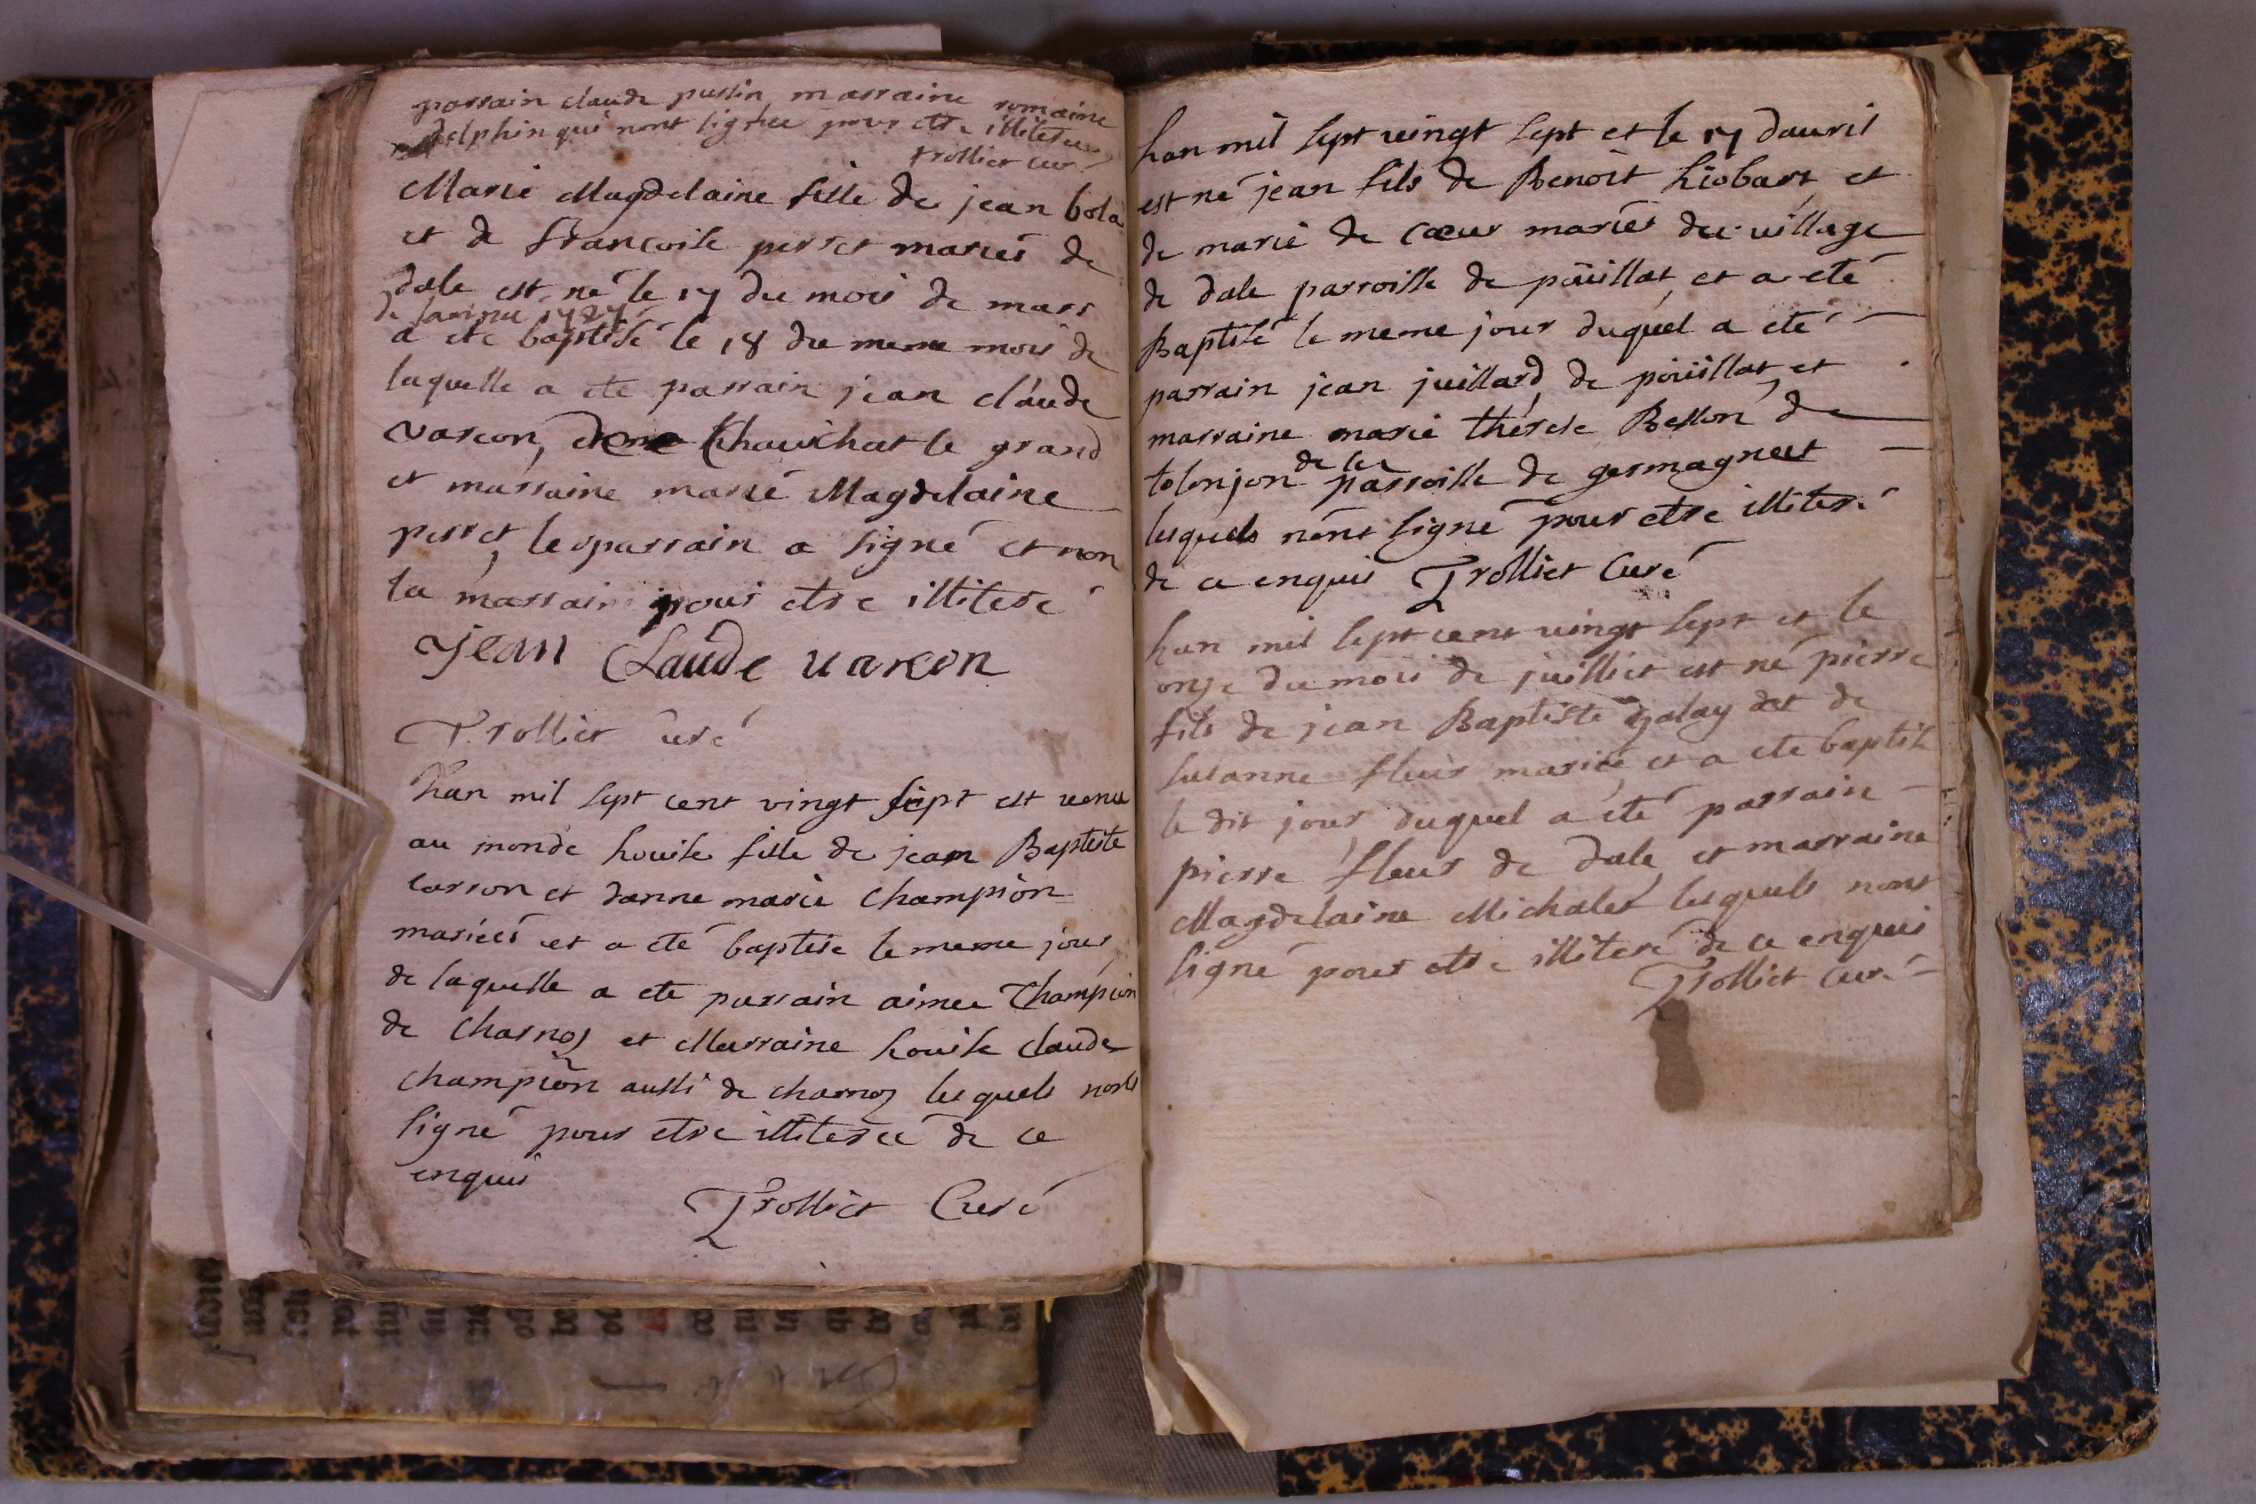 parrain claude pustin marraine romaine
delphin qui nont signee pour etre illiteree
trolliet cur
Marie Magdelaine fille de jean bola
et de francoise perret mariés de
dale est né le 17 du mois de mars
de lannee 1727
a ete baptisé le 18 du meme mois de
laquelle a ete parrain jean claude
varcon, chauchat le grand
et marraine marie Magdelaine
perret, le parrain a signé et non
la marrain pour etre illiteré
jean claude varcon
Trolliet curé
lan mil sept cent vingt sept est venu
au monde louise fille de jean Baptiste
carron et danne marie champion
mariées et a eté baptise le meme jour
de laquelle a ete parrain aimee champion
de charnoz et Marraine louise claude
champion aussi de charnoz les quels nont
signé pour etre illiteree de ce
enquis
Trolliet Curé
lan mil sept vingt sept et le 17 dauril
est né jean fils de Benoit liobart et
de marie de cœur mariés du village
de dale parroisse de poüillat et a eté
Baptisé le meme jour duquel a eté
parrain jean juillard de poüillat et
marraine marie thérese Bellon de
tolonjon de la parroisse de germagneet
lesquels nont signé pour etre illiteré
de ce enquis Trolliet Curé
lan mil sept cent vingt sept et le
onze du mois de juilliet est né pierre
fils de jean Baptiste de
susanne fleur mariée et a ete baptisé
le dit jour duquel a eté parrain
pierre fleur de dale et marraine
Magdelaine Michalet lesquels nont
signé pour etre illiteré de ce enquis
Trolliet curé